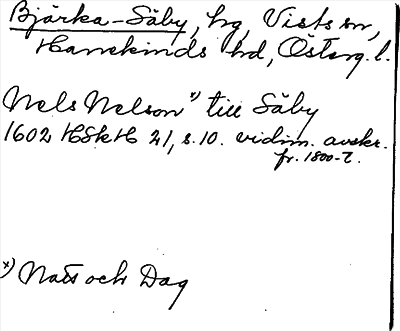 Bjärka-Säby, hg, Vists sn,
Hanekinds hd, Österg. l.
Nels Nelson x) till Säby
1602 HSkH 21, s. 10. vidim. avskr.
fr. 1800-t.
x) Natt och Dag